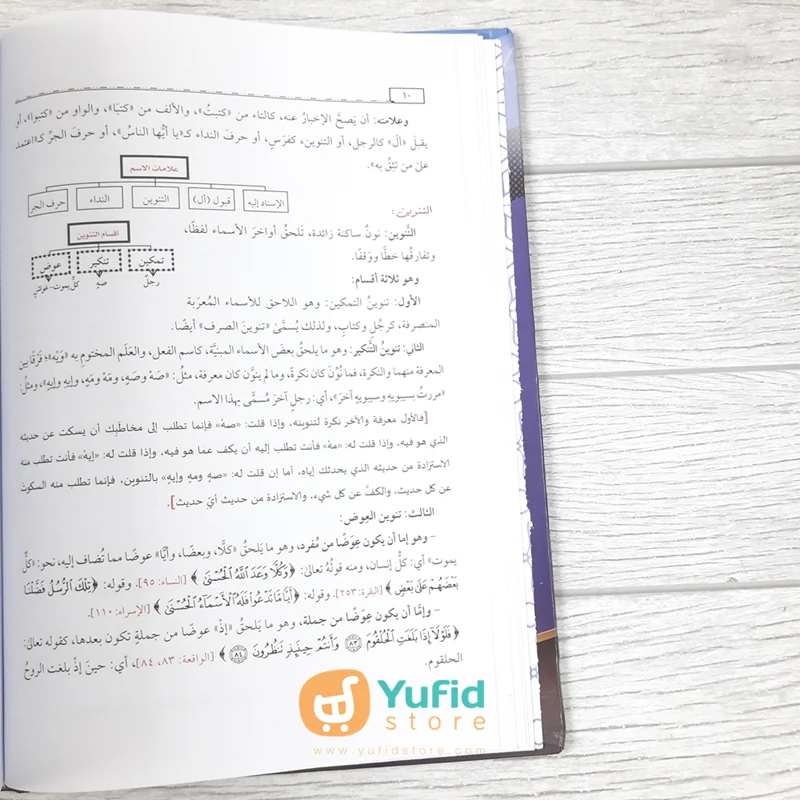 ١٠
وعلامته: أن يَصحَّ الإخبارُ عنه، كالتاء من «كتبتُ»، والألف من «كتبَا»، والواو من «كتبوا»، أو
يقبلَ «أل» كالرجل، أو التنوين، كفرَسٍ، أو حرفَ النداء كـ«يا أيُّها الناسُ»، أو حرفَ الجرِّ كـ«اعتمد
على من تثِقُ به».
علامات الاسم
الإسناد إليه
قبول (أل)
التنوين
النداء
حرف الجر
التنوين:
التَّنوين: نونٌ ساكنة زائدة، تَلحقُ أواخرَ الأسماء لفظًا،
وتفارقُها خطًّا ووَقفًا.
أقسام التنوين
تمكين
تنكير
عوض
رجلٌ
صهٍ
كلٌّ يموت - غواشٍ
وهو ثلاثة أقسام:
الأول: تنوينُ التمكين: وهو اللاحق للأسماء المُعرَبة
المنصرفة، كرجُلٍ وكتابٍ، ولذلك يُسمَّى «تنوينَ الصرف» أيضًا.
الثاني: تنوينُ التَّنكير: وهو ما يلحقُ بعضَ الأسماء المبنيَّة، كاسم الفعل، والعَلَم المختوم به «وَيْه»؛ فَرْقًا بين
المعرفة منهما والنكرة، فما نُوِّنَ كان نكرةً، وما لم ينوَّن كان معرفة، مثلُ: «صَهْ وصَهٍ، ومَهْ ومَهٍ، وإيهِ وإيهٍ»، ومثلُ:
«مررتُ بسيبويهِ وسيبويهٍ آخرَ»، أي: رجلٍ آخرَ مُسمًّى بهذا الاسم.
[فالأول معرفة والآخر نكرة لتنوينه، وإذا قلت: «صه» فإنما تطلب إلى مخاطَبِك أن يسكت عن حديثه
الذي هو فيه، وإذا قلت له: «مه» فأنت تطلب إليه أن يكف عما هو فيه، وإذا قلت له: «إيهِ» فأنت تطلب منه
الاستزادة من حديثه الذي يحدثك إياه، أما إن قلت له: «صهٍ ومهٍ وإيهٍ» بالتنوين، فإنما تطلب منه السكوتَ
عن كل حديث، والكفَّ عن كل شيء، والاستزادةَ من حديث أيّ حديث].
الثالث: تنوين العِوض:
– وهو إما أن يكون عِوَضًا من مُفرد، وهو ما يَلحقُ «كلَّا، وبعضًا، وأيًّا» عوضًا مما تُضاف إليه، نحو: «كلٌّ
يموت» أي: كلُّ إنسان، ومنه قولُهُ تعالى: ﴿وَكُلًّا وَعَدَ اللَّهُ الْحُسْنَىٰ﴾ [النساء: ٩٥]. وقوله: ﴿تِلْكَ الرُّسُلُ فَضَّلْنَا
بَعْضَهُمْ عَلَىٰ بَعْضٍ﴾ [البقرة: ٢٥٣]. وقوله: ﴿أَيًّا مَّا تَدْعُوا فَلَهُ الْأَسْمَاءُ الْحُسْنَىٰ﴾ [الإسراء: ١١٠].
– وإمَّا أن يكون عِوَضًا من جملة، وهو ما يَلحقُ «إذْ» عوضًا من جملةٍ تكون بعدها، كقوله تعالى:
﴿فَلَوْلَا إِذَا بَلَغَتِ الْحُلْقُومَ ٨٣ وَأَنتُمْ حِينَئِذٍ تَنظُرُونَ ٨٤﴾ [الواقعة: ٨٣، ٨٤]، أي: حينَ إذْ بلغت الروحُ
الحلقوم.
Yufid
store
www.yufidstore.com